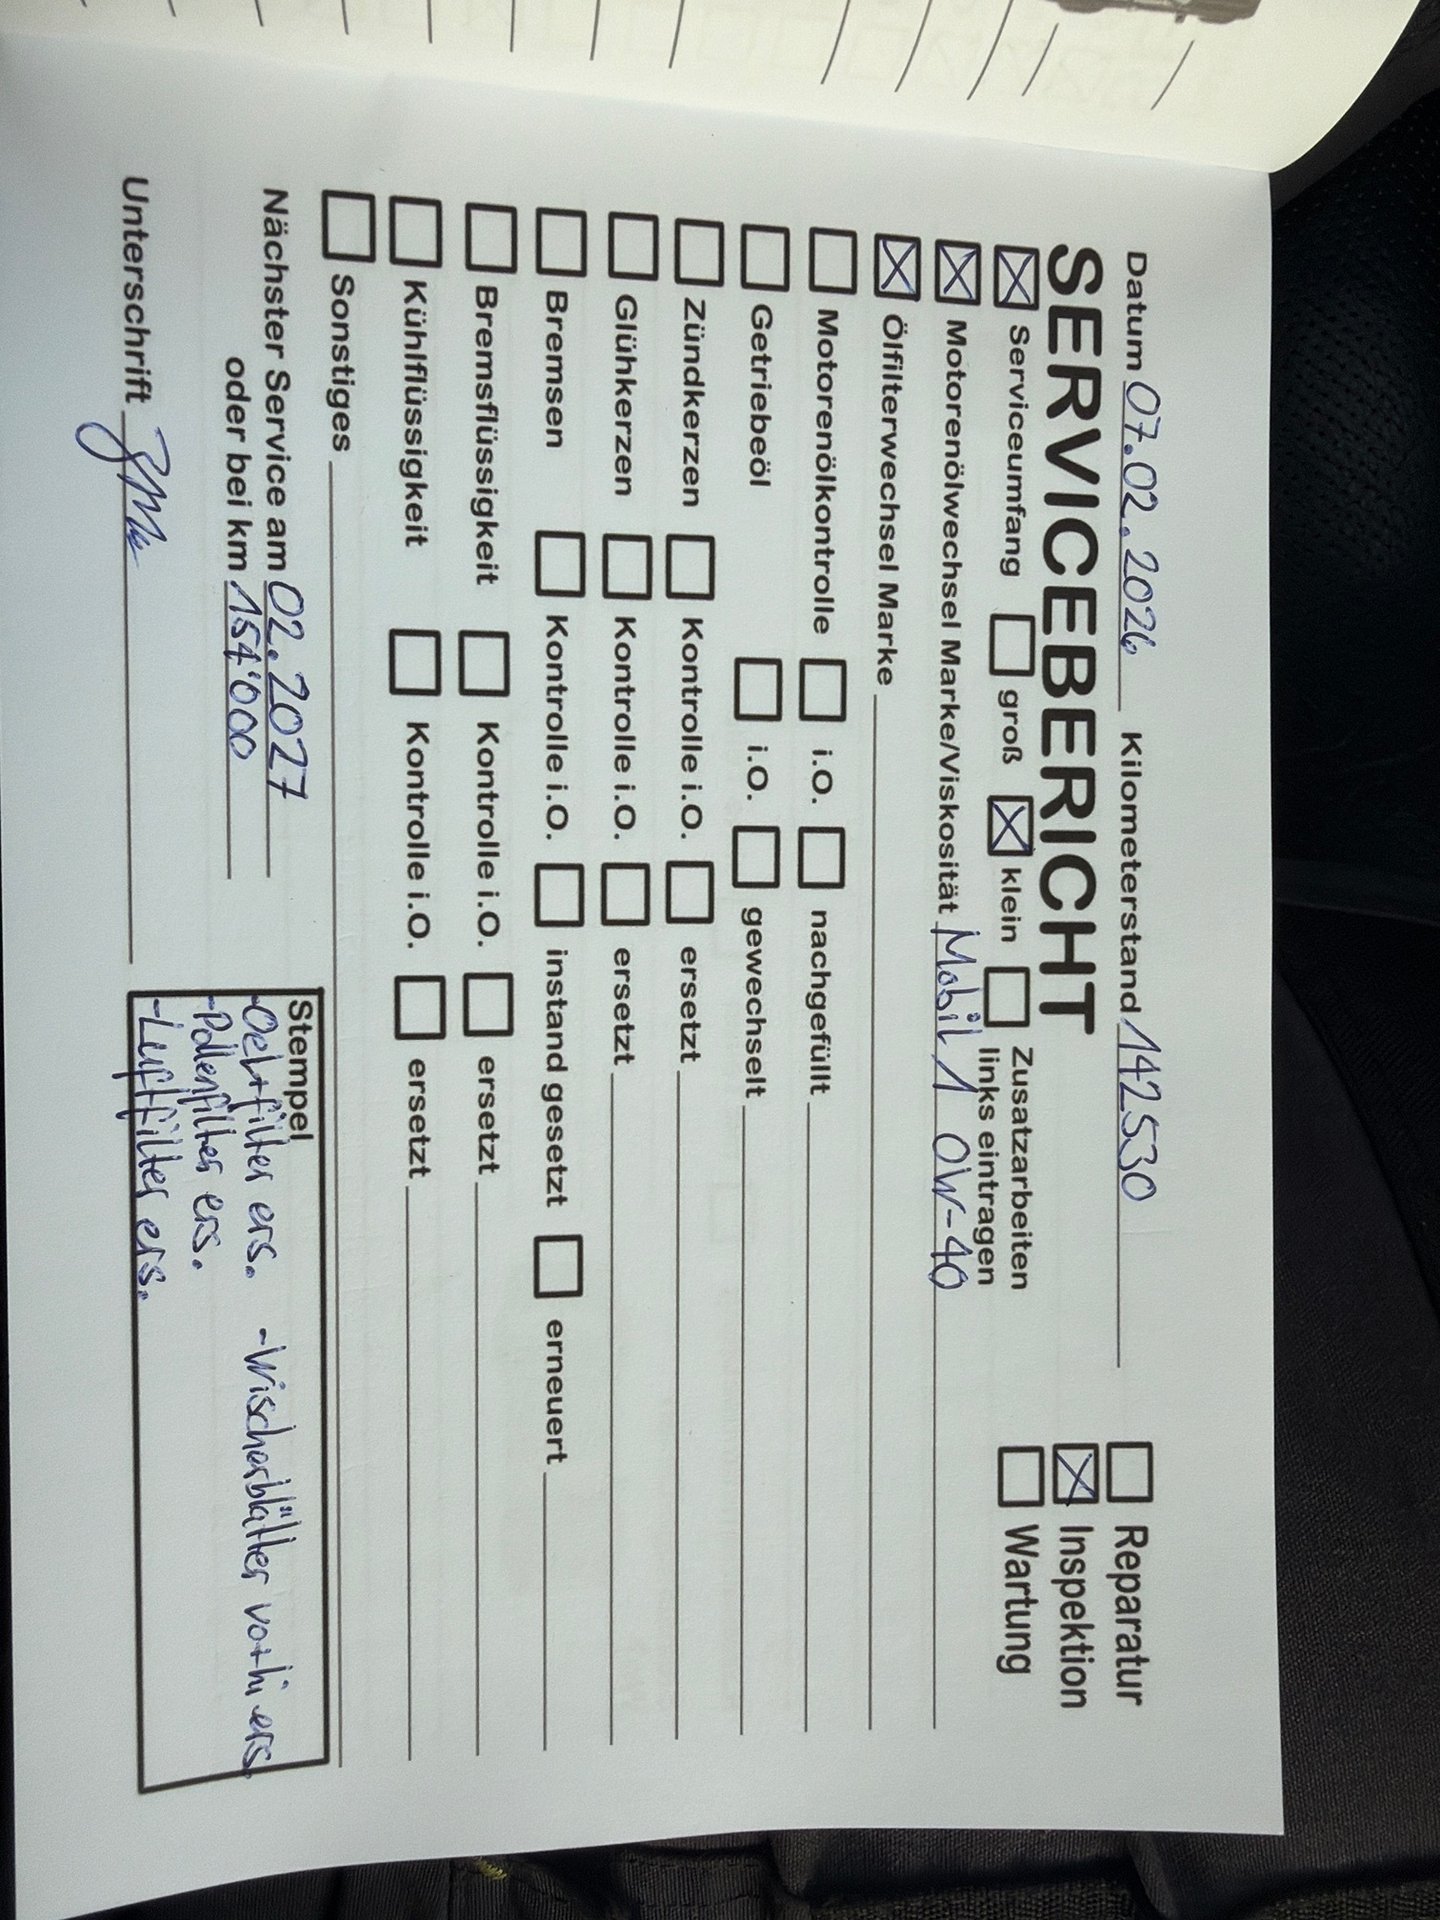 Datum 07.02.2026 Kilometerstand 142530
SERVICEBERICHT
Reparatur
Inspektion
Wartung
Serviceumfang groß klein Zusatzarbeiten
links eintragen
Motorenölwechsel Marke/Viskosität Mobil 1 0W-40
Ölfilterwechsel Marke
Motorenölkontrolle i.O. nachgefüllt
Getriebeöl i.O. gewechselt
Zündkerzen Kontrolle i.O. ersetzt
Glühkerzen Kontrolle i.O. ersetzt
Bremsen Kontrolle i.O. instand gesetzt erneuert
Bremsflüssigkeit Kontrolle i.O. ersetzt
Kühlflüssigkeit Kontrolle i.O. ersetzt
Sonstiges
Nächster Service am 02.2027
oder bei km 154'000
Unterschrift
Stempel
-Oel+filter ers. -Wischerblätter vo+hi ers
-Pollenfilter ers.
-Luftfilter ers.